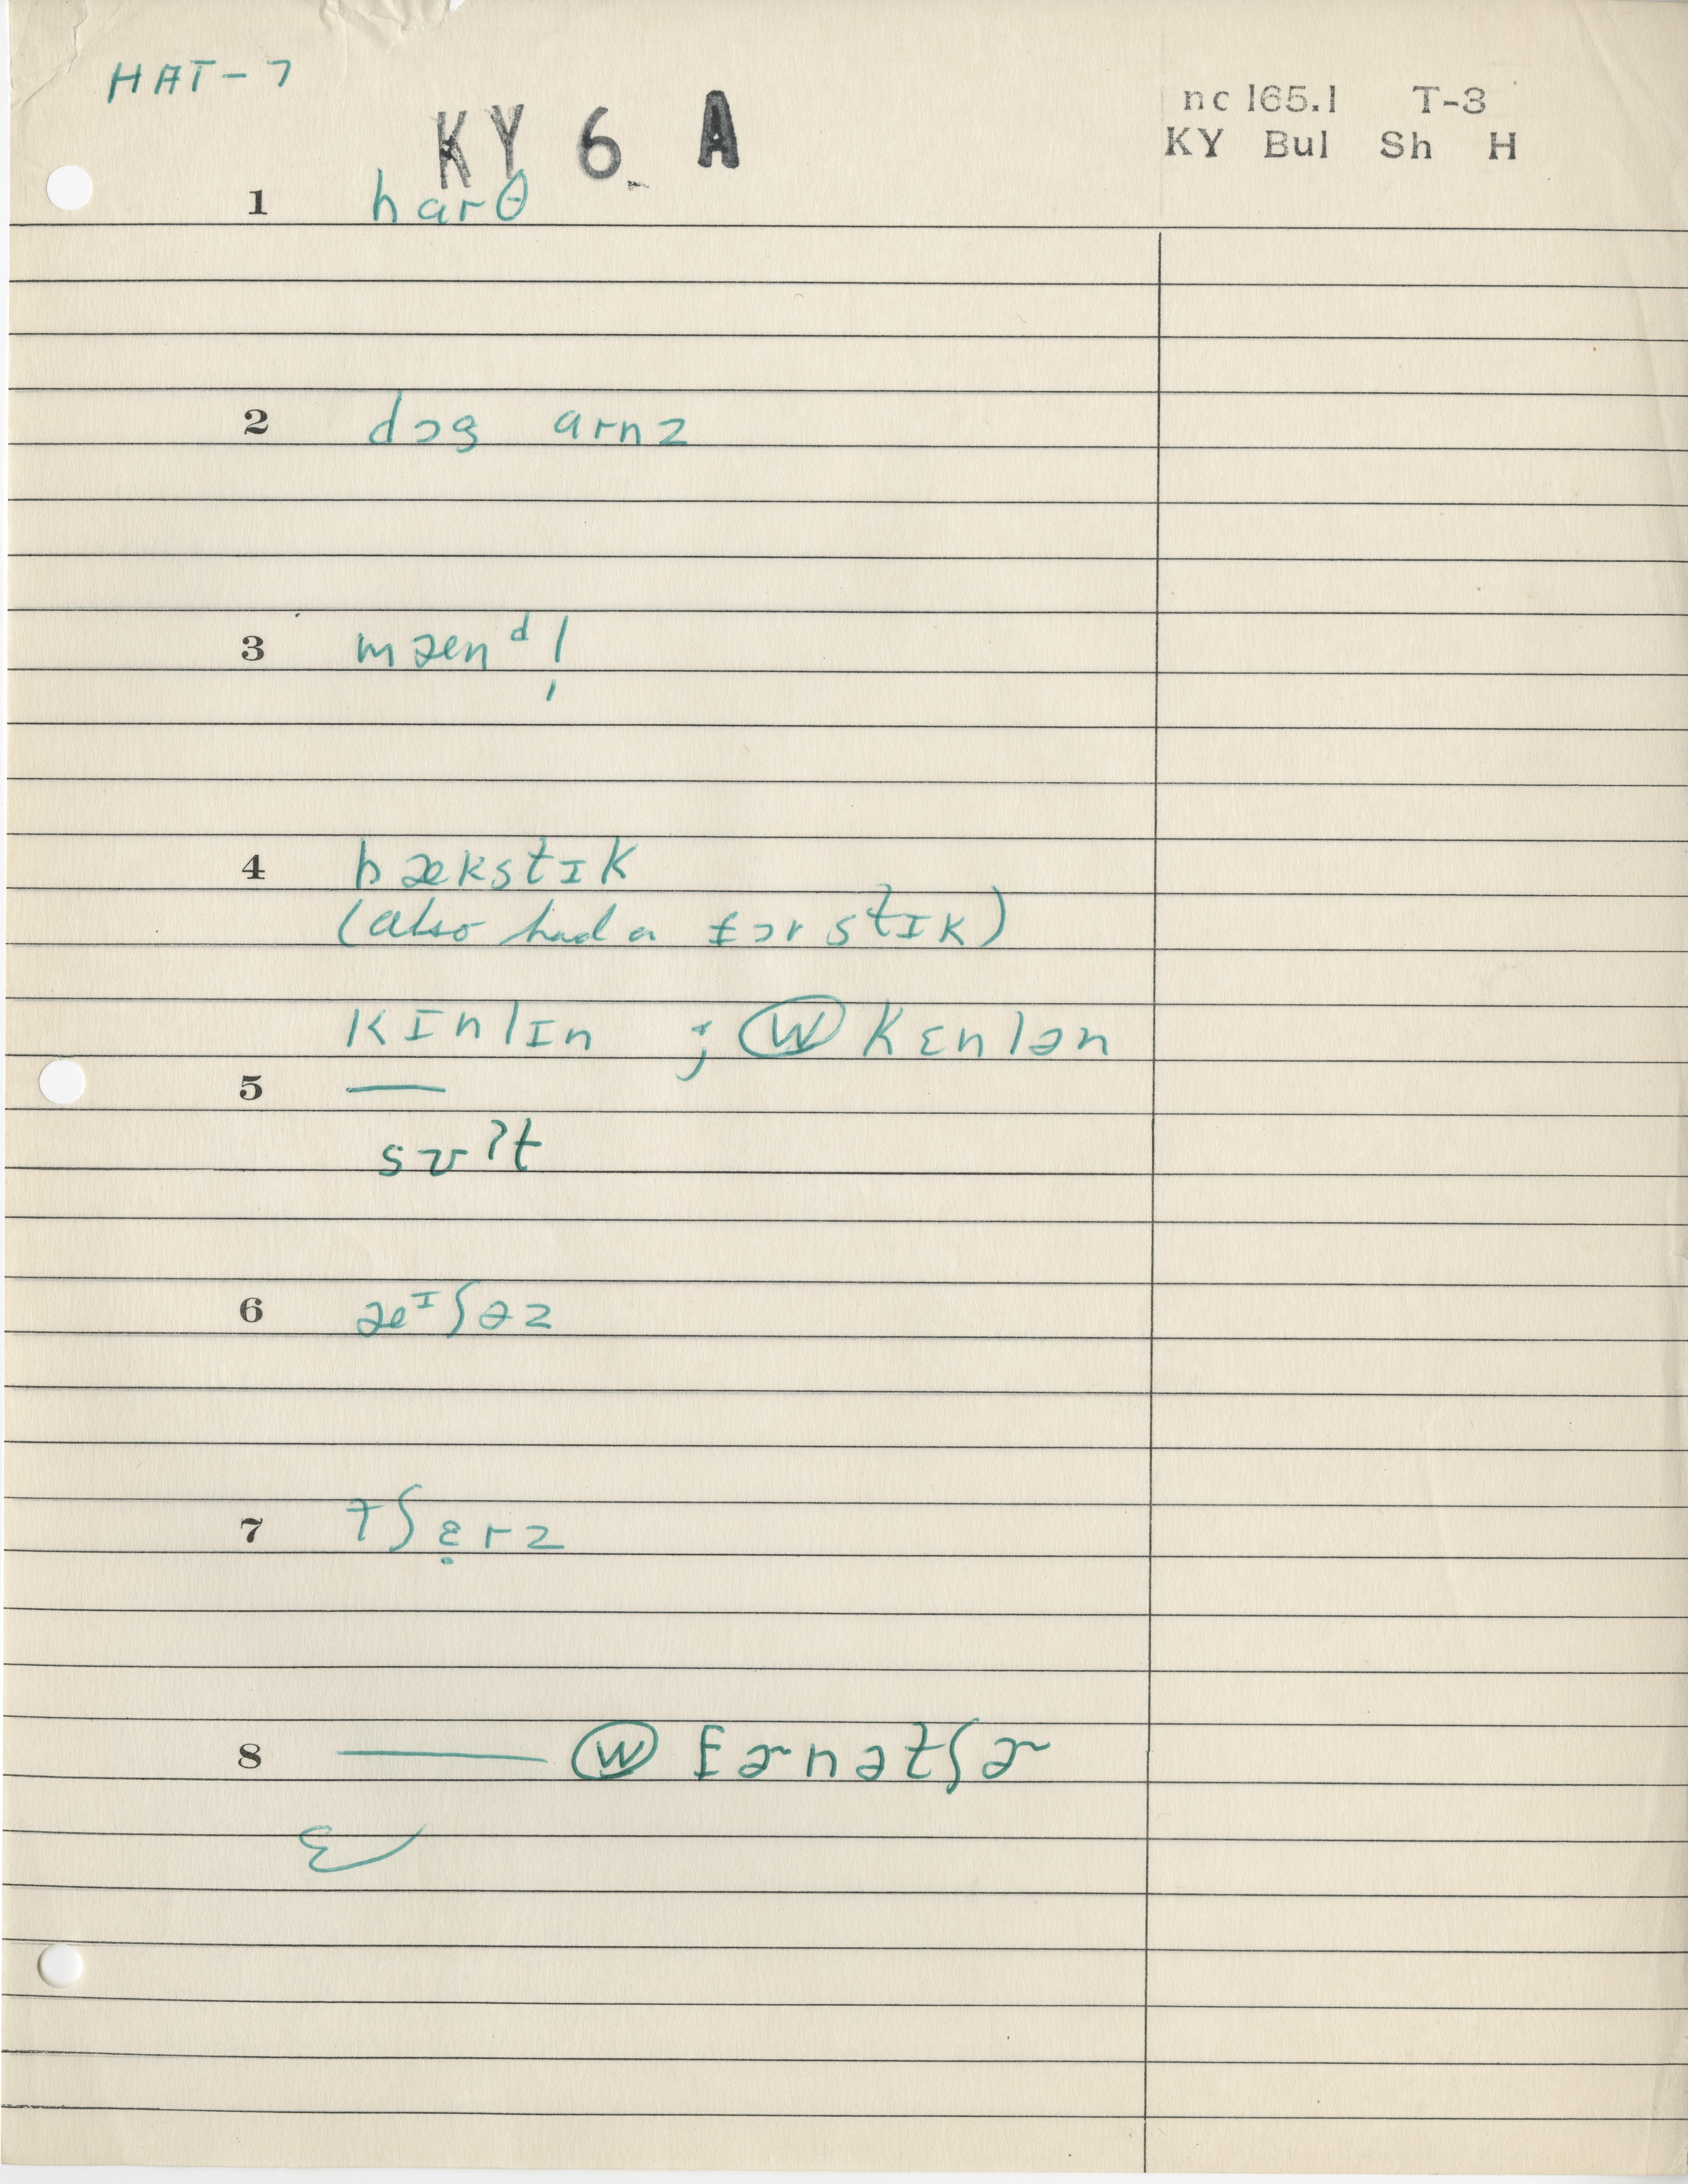 HAT-7
KY 6 A
nc 165.1 T-3
KY Bul Sh H
1 harθ
2 dɔg arnz
3 mænᵈl̩
4 bækstɪk
(also had a fɔrstɪk)
kɪnlɪn ; Ⓦ kɛnlən
5 —
sʊʔt
6 æᶦʃəz
7 tʃɛ̣rz
8 — Ⓦ fɚnətʃɚ